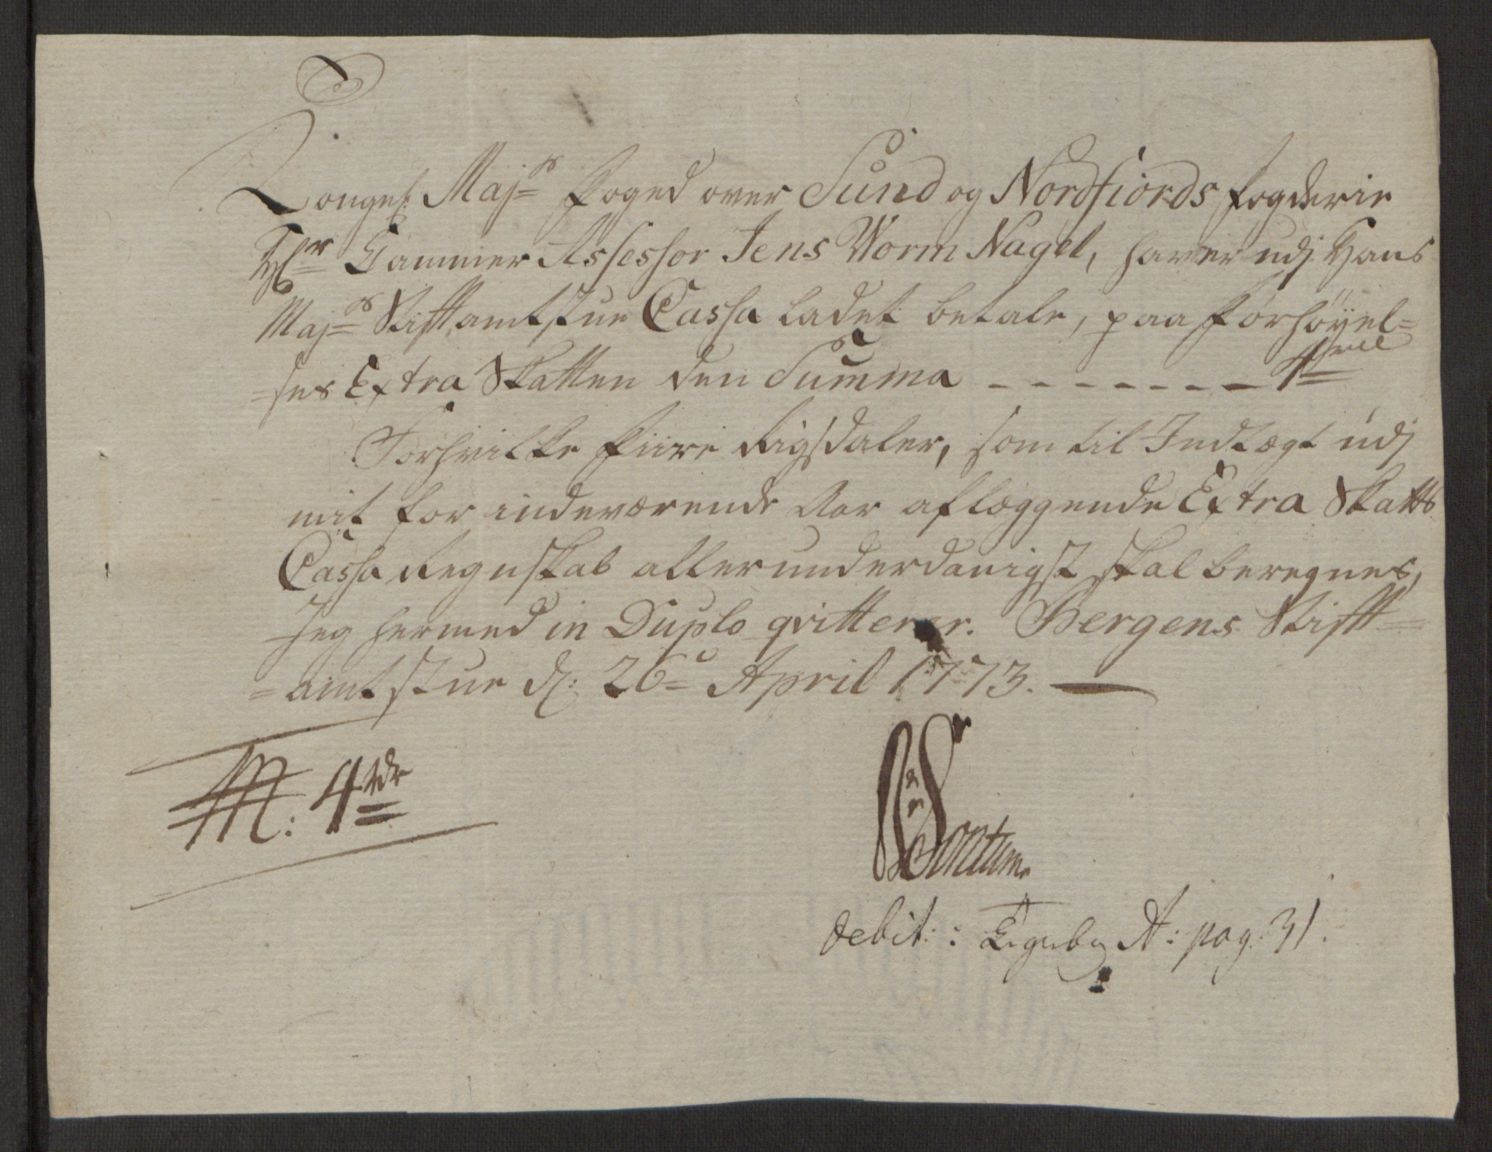 Kongel: Majts Foged over Sund og Nordfiords fogderie
Hr Cammer Assessor Jens Worm Nagel, haver udj Hans
Majts Stiftamtstue Cassa ladet betale, paa Forhøyel=
=ses Extra Skatten den Summa - - - - - - - 4
Forhvilke fiire Rigsdaler, som til Indtægt udj
mit for indeværende Aar aflæggende Extra Skatts
Cassa Regnskab allerunderdanigst skal beregnes,
Jeg hermed in Duplo qvitterer. Bergens Stifft=
=amtstue d: 26 April 1773.
4 rdr
Sontum
debit: A: pag: 31.